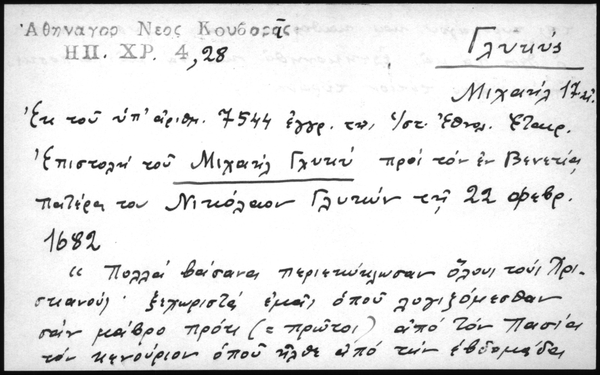 Ἀθηναγορ Νεος Κουβαρᾶς
ΗΠ. ΧΡ. 4, 28
Γλυκύς
Μιχαήλ 17 αἰ.
Ἐκ τοῦ ὑπ' ἀριθμ. 7544 ἐγγρ. τῆς Ἱστ. Ἐθνολ. Ἑταιρ.
Ἐπιστολή τοῦ Μιχαήλ Γλυκύ πρός τόν ἐν Βενετίᾳ
πατέρα του Νικόλαον Γλυκύν τῇ 22 φεβρ.
1682
" Πολλά βάσανα περιεκύκλωσαν ὅλους τούς Χρι-
στιανούς· ξεχωριστά ἐμᾶς ὁπού λογιζόμεσθαν
σάν μάβρο πρότι (= πρῶτοι) ἀπό τόν Πασία
τόν κενούριον ὁπού ἦλθε ἀπό τήν ἑβδομάδα